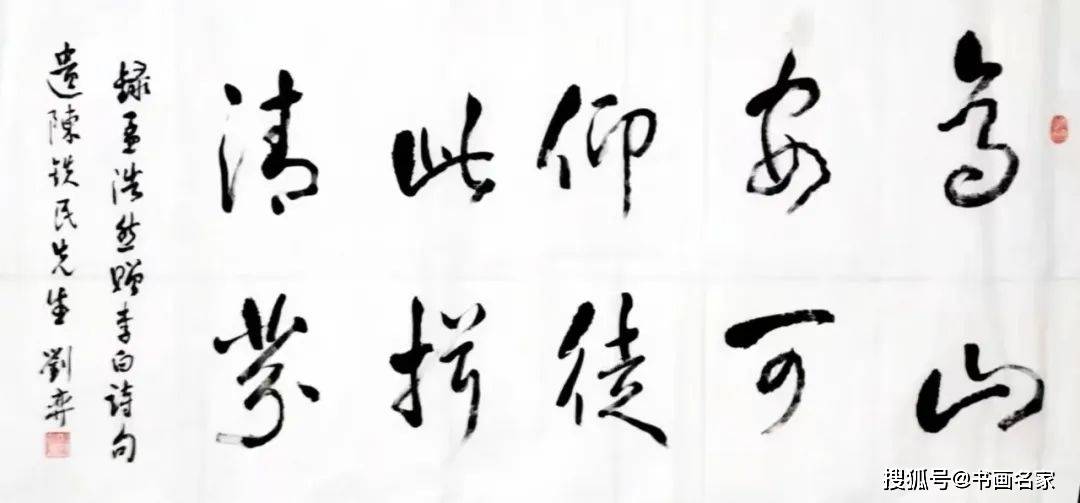 高山
安可
仰徒
此揖
清芬
録孟浩然贈李白詩句
遺陳鉄民先生 劉弈
搜狐号@书画名家